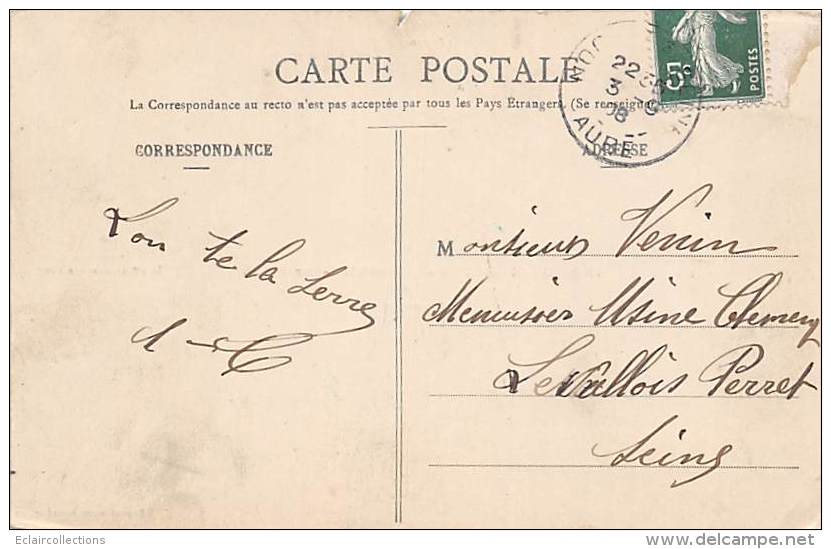 CARTE POSTALE
La Correspondance au recto n'est pas acceptée par tous les Pays Etrangers. (Se renseigner
CORRESPONDANCE
ADRESSE
5c
POSTES
22
3
08
AUBE
Lon te la Serre
Monsieur Venin
Menuisier Usine Clemen
Levallois Perret
Seine
Eclaircollections
www.delcampe.net